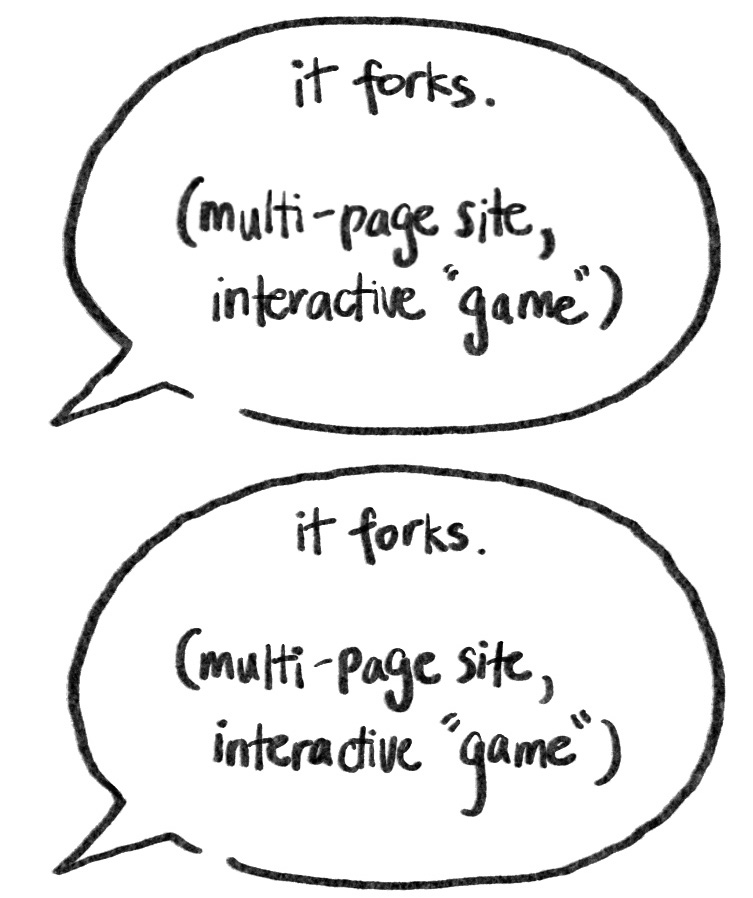 it forks.
(multi-page site,
interactive "game")
it forks.
(multi-page site,
interactive "game")